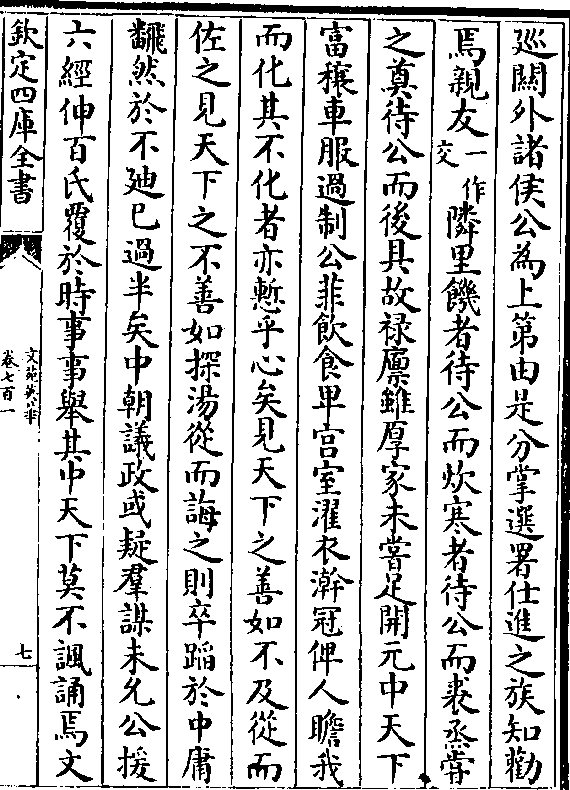 廵闗外諸侯公為上第由是分掌選署仕進之族知勸
焉親友一作交隣里饑者待公而炊寒者待公而裘烝甞
之奠待公而後具故禄廪雖厚家未嘗足開元中天下
富穰車服過制公菲飲食卑宫室濯衣澣冠俾人瞻我
而化其不化者亦慙乎心矣見天下之善如不及從而
佐之見天下之不善如探湯從而誨之則卒蹈於中庸
飜然於不廸已過半矣中朝議政或疑羣謀未允公援
六經伸百氏覆於時事事舉其中天下莫不諷誦焉文
欽定四庫全書
文苑英華
卷七百一
七